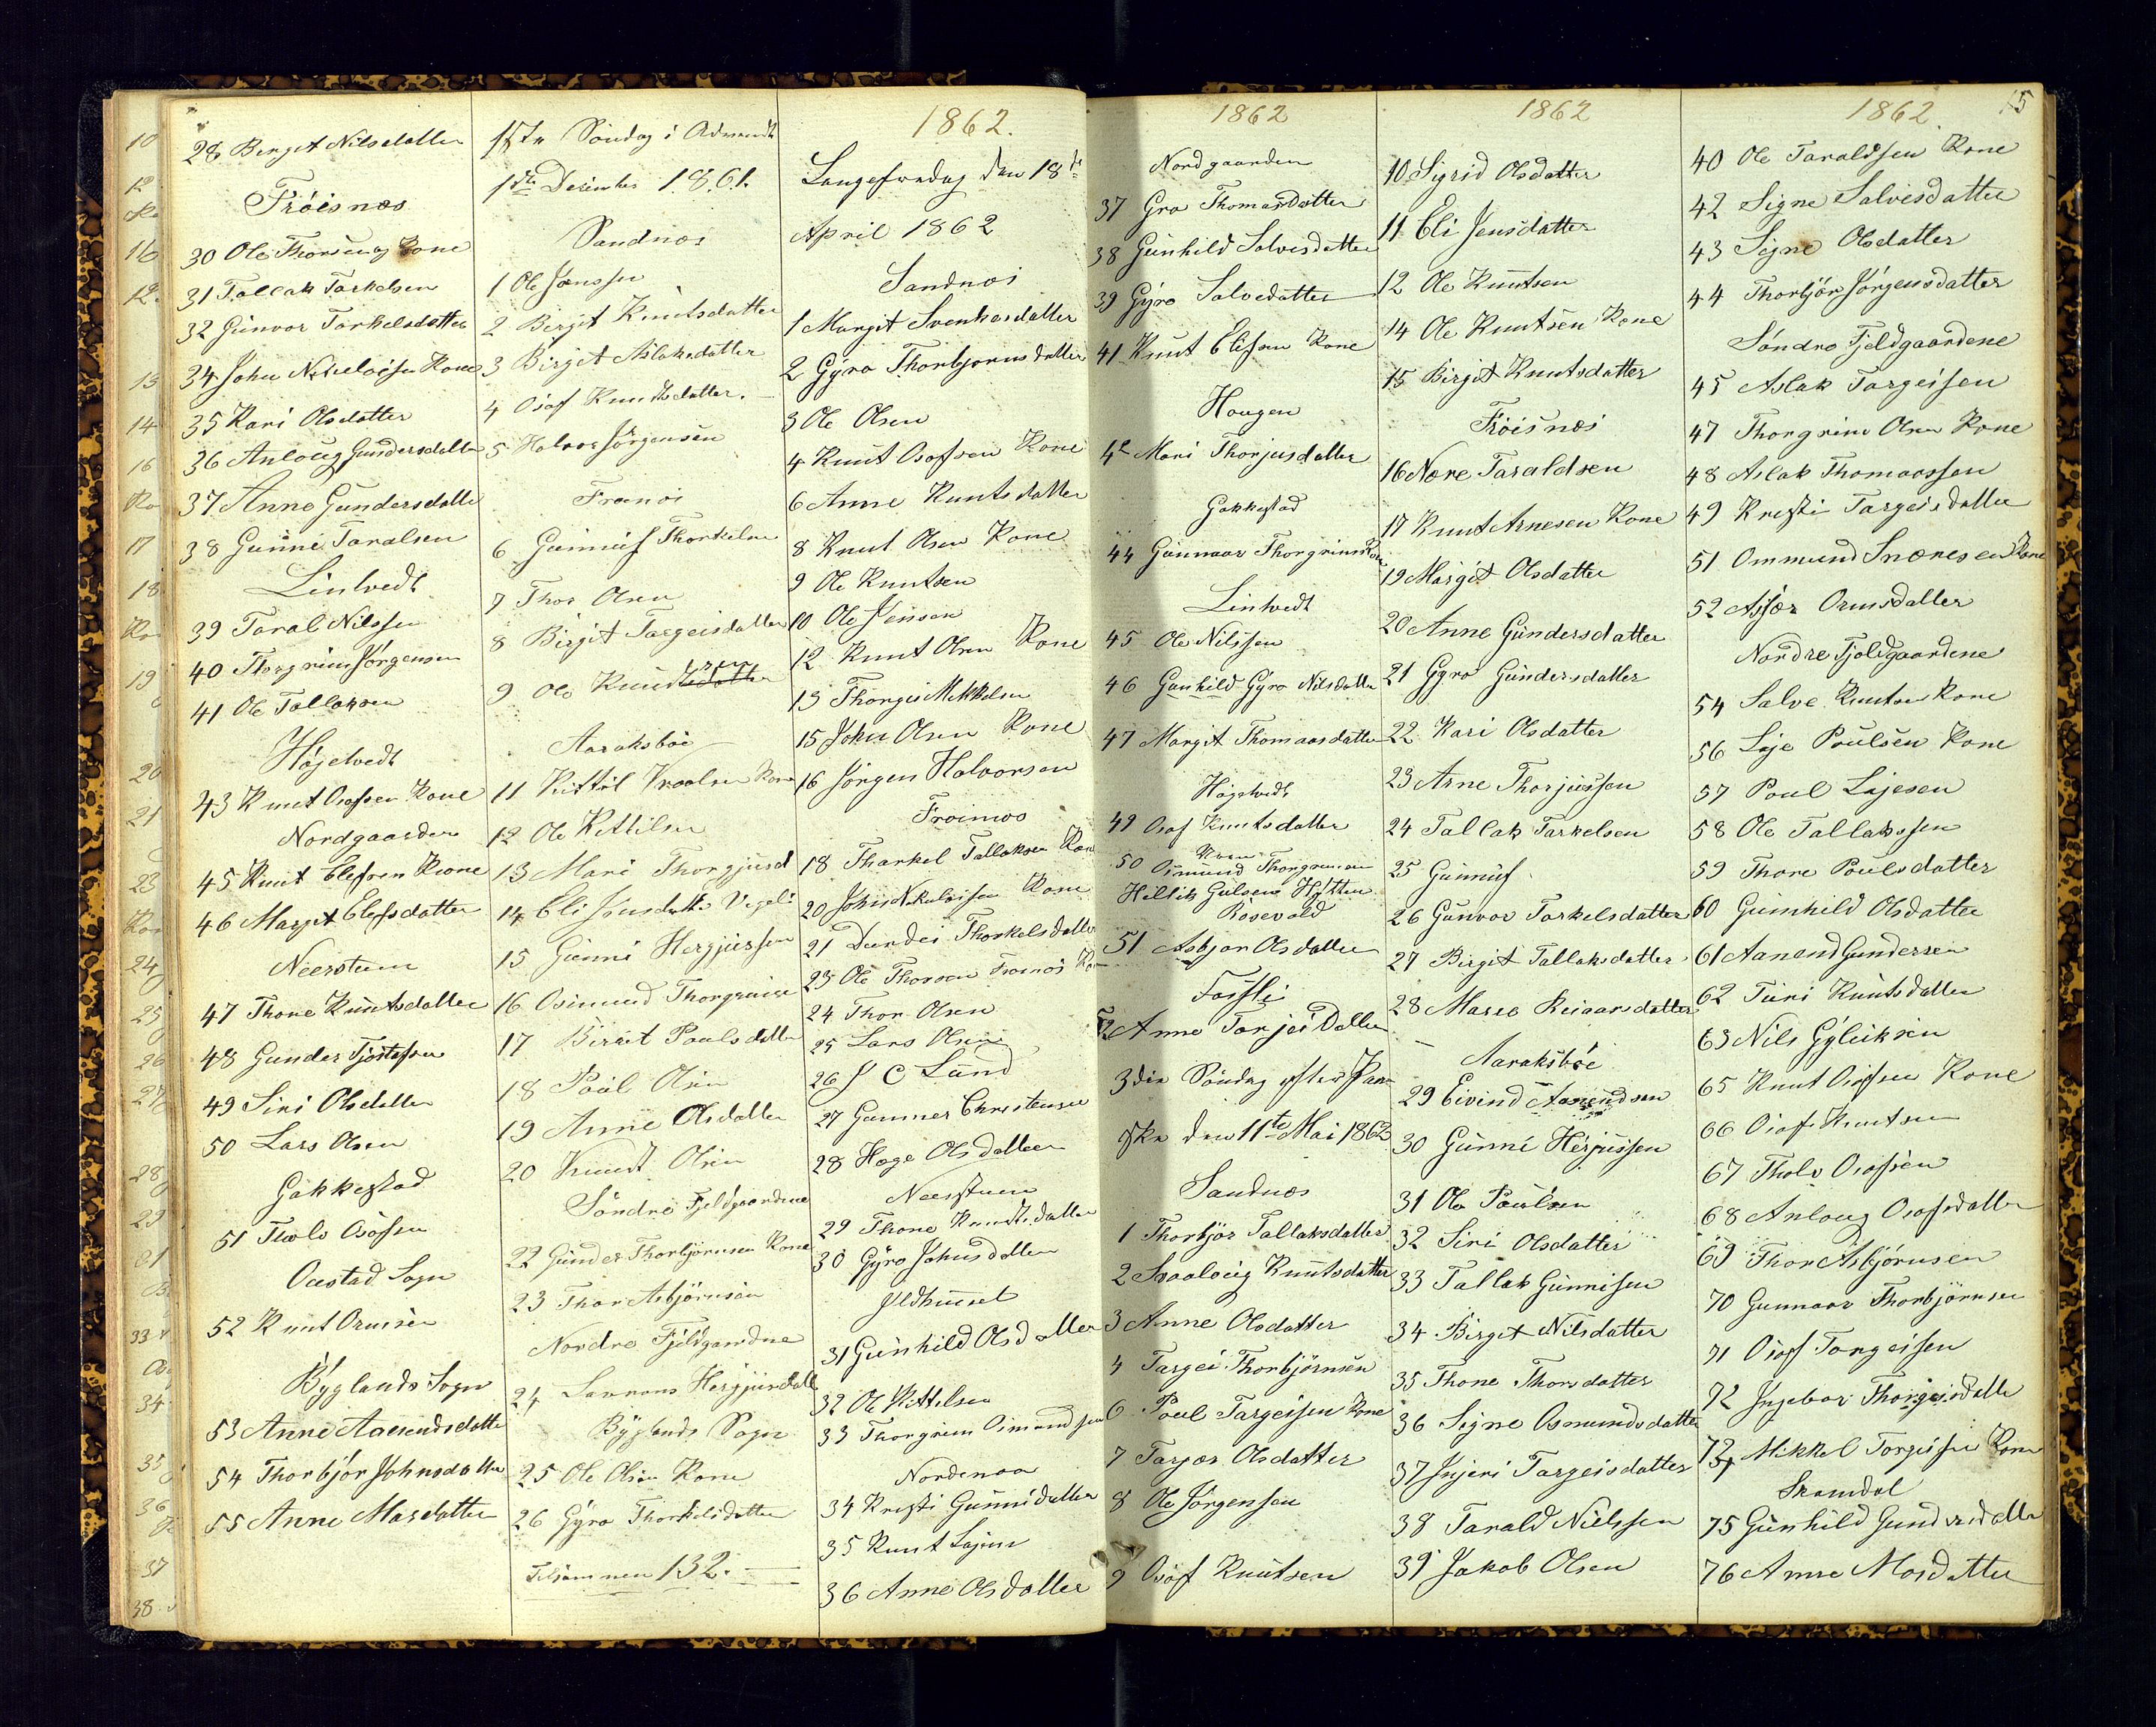 28 Berget Nilsdatter
Fröisnæs
30 Ole Thorsen og Kone
31 Tallak Tarkelsen
32 Gunvor Tarkelsdatter
34 John Nikolaisen Kone
35 Kari Olsdatter
36 Anloug Gundersdatter
37 Anne Gundersdatter
38 Gunne Taralsen
Lintvedt
39 Taral Nilssen
40 Thorgrim Jörgensen
41 Ole Tallaksen
Högetvedt
43 Knut Osofsen Kone
Nordgaarden
45 Knut Elefsen Kone
46 Margit Elefsdatter
Neerstuen
47 Thone Knutsdatter
48 Gunder Tjostofsen
49 Siri Olsdatter
50 Lars Olsen
Gakkestad
51 Tholv Osofsen
Oustad Sogn
52 Knut Ormsen
Byglands Sogn
53 Anne Aanendsdatter
54 Thorbjör Johnsdatter
55 Anne Masdatter
1ste Söndag i Advendt
1ste Desember 1861.
Sandnæs
1 Ole Jonssen
2 Bergit Knutsdatter
3 Birgit Aslaksdatter
4 Osof Knutsdatter
5 Halvor Jörgensen
Frönæs
6 Gunnuf Thorkelsen
7 Thor Olsen
8 Birgit Targeisdatter
9 Ole Knudtsen
Aaraksböe
11 Kittil Vraalsen Kone
12 Ole Kittilsen
13 Mari Thorgjusd
14 Eli Jensdatter Vegeli
15 Gunni Hergjussen
16 Osmund Thorgrimsen
17 Birgit Poulsdatter
18 Poul Olsen
19 Anne Olsdatter
20 Knudt Olsen
Söndre Fjeldgaardene
22 Gunder Thorbjörnsen Kone
23 Thor Asbjörnsen
Nordre Fjeldgaardne
24 Hergjusdatter
Byglands Sogn
25 Ole Olsen Kone
26 Gyro Thorkelsdatter
Tilsammen 132.
1862.
Langefredag den 18de
April 1862
Sandnæs
1 Margit Svenkesdatter
2 Gyro Thorbjornsdatter
3 Ole Olsen
4 Knut Osofsen Kone
6 Anne Knutsdatter
8 Knut Olsen Kone
9 Ole Knutsen
10 Ole Jensen
12 Knut Olsen Kone
13 Thorgei Mikkelsen
15 John Olsen Kone
16 Jörgen Halvorsen
Froisnæs
18 Tharkel Tallaksen Kone
20 John Nikolaisen Kone
21 Thorkelsdatter
23 Ole Thorsen Froinæs Kone
24 Thor Olsen
25 Lars Olsen
26 J C Lund
27 Gunner Christensen
28 Hæge Olsdatter
Neerstuen
29 Thone Knudtsdatter
30 Gyro Johnsdatter
Ildhuuset
31 Gunhild Olsdatter
32 Ole Kittelsen
33 Thorgrim Osmundsen
Nordenaa
34 Kristi Gunnidatter
35 Knut Lajesen
36 Anne Olsdatter
1862
Nordgaarden
37 Gro Thomasdatter
38 Gunhild Salvesdatter
39 Gyro Salvedatter
41 Knut Elefsen Kone
Hougen
42 Mari Thorjusdatter
Gakkestad
44 Gunnaar Thorgrims Kone
Lintvedt
45 Ole Nilssen
46 Gunhild Gyro Nilsdatter
47 Margit Thomaasdatter
Högetvedt
49 Osof Knutsdatter
50 Osmund Thorgrimsen
Rosevold
51 Asbjor Olsdatter
52 Anne Tarjeidatter
3die Söndag efter Paa-
ske den 11te Mai 1862
Sandnæs
1 Thorbjör Tallaksdatter
2 Knutsdatter
3 Anne Olsdatter
4 Targei Thorbjörnsen
6 Poul Targeisen Kone
7 Tarjær Olsdatter
8 Ole Jörgensen
9 Osof Knutsen
1862
10 Sigrid Olsdatter
11 Eli Jensdatter
12 Ole Knutsen
14 Ole Knutsen Kone
15 Birgit Knutsdatter
Fröisnæs
16 Nære Taraldsen
17 Knut Arnesen Kone
19 Margit Olsdatter
20 Anne Gundersdatter
21 Gyro Gundersdatter
22 Kari Olsdatter
23 Arne Thorjussen
24 Tallak Tarkelsen
25 Gunnuf
26 Gunvor Tarkelsdatter
27 Birgit Tallaksdatter
28 Maren Reiaarsdatter
Aaraksböe
29 Eivind Aanendsen
30 Gunne Herjussen
31 Ole Poulsen
32 Siri Olsdatter
33 Tallak Gunnisen
34 Birgit Nilsdatter
35 Thone Thorsdatter
36 Signe Osmundsdatter
37 Injeri Targeisdatter
38 Tarald Nielssen
39 Jakob Olsen
1862 15
40 Ole Taraldsen Kone
42 Signe Salvesdatter
43 Signe Olsdatter
44 Thorbjör Jörgensdatter
Söndre Fjeldgaardene
45 Aslak Targeisen
47 Thorgrim Olsen Kone
48 Aslak Thomaassen
49 Kristi Targeisdatter
51 Ommund Snaresen Kone
52 Asjær Ormsdatter
Nordre Fjeldgaardene
54 Salve Knutsen Kone
56 Laje Poulsen Kone
57 Poul Lajesen
58 Ole Tallakssen
59 Thore Poulsdatter
60 Gunhild Olsdatter
61 Aanend Gundersen
62 Turi Knutsdatter
63 Nils Gyleiksen
65 Knut Osofsen Kone
66 Osof Knutsen
67 Tholv Osofsen
68 Anloug Osofsdatter
69 Thor Asbjörnsen
70 Gunnaar Thorbjörnsen
71 Osof Torgeisen
72 Ingebor Thorgeisdatter
74 Mikkel Torgeisen Kone
Skomdal
75 Gunhild Gundersdatter
76 Anne Mosdatter